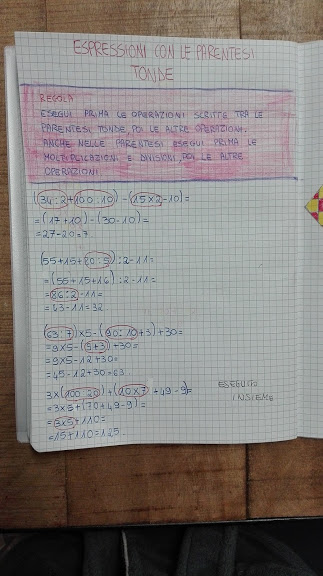 ESPRESSIONI CON LE PARENTESI
TONDE
REGOLA
ESEGUI PRIMA LE OPERAZIONI SCRITTE TRA LE
PARENTESI TONDE, POI LE ALTRE OPERAZIONI.
ANCHE NELLE PARENTESI ESEGUI PRIMA LE
MOLTIPLICAZIONI E DIVISIONI, POI LE ALTRE
OPERAZIONI
(34:2+100:10)-(15×2-10)=
=(17+10)-(30-10)=
=27-20=7
(55+15+80:5):2-11=
=(55+15+16):2-11=
=86:2-11=
=43-11=32
(63:7)×5-(90:10+3)+30=
=9×5-(9+3)+30=
=9×5-12+30=
=45-12+30=63
3×(100:20)+(10×7+49-9)=
=3×5+(70+49-9)=
=3×5+110=
=15+110=125
ESEGUITO
INSIEME